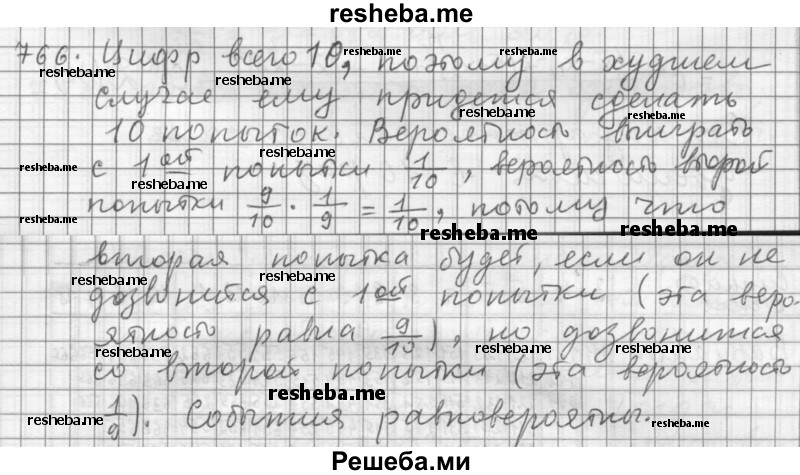 resheba.me
766. Цифр всего 10, поэтому в худшем
resheba.me resheba.me
resheba.me resheba.me
случае ему придется сделать
resheba.me
10 попыток. Вероятность выиграть
resheba.me
с 1ой попытки 1/10, вероятность второй
resheba.me resheba.me resheba.me
попытки 9/10 · 1/9 = 1/10, потому что
resheba.me resheba.me resheba.me
вторая попытка будет, если он не
resheba.me resheba.me
дозвонится с 1ой попытки (эта веро-
ятность равна 9/10), но дозвонится
resheba.me resheba.me resheba.me
со второй попытки (эта вероятность
resheba.me
1/9). События равновероятны.
resheba.me resheba.me
Решеба.ми